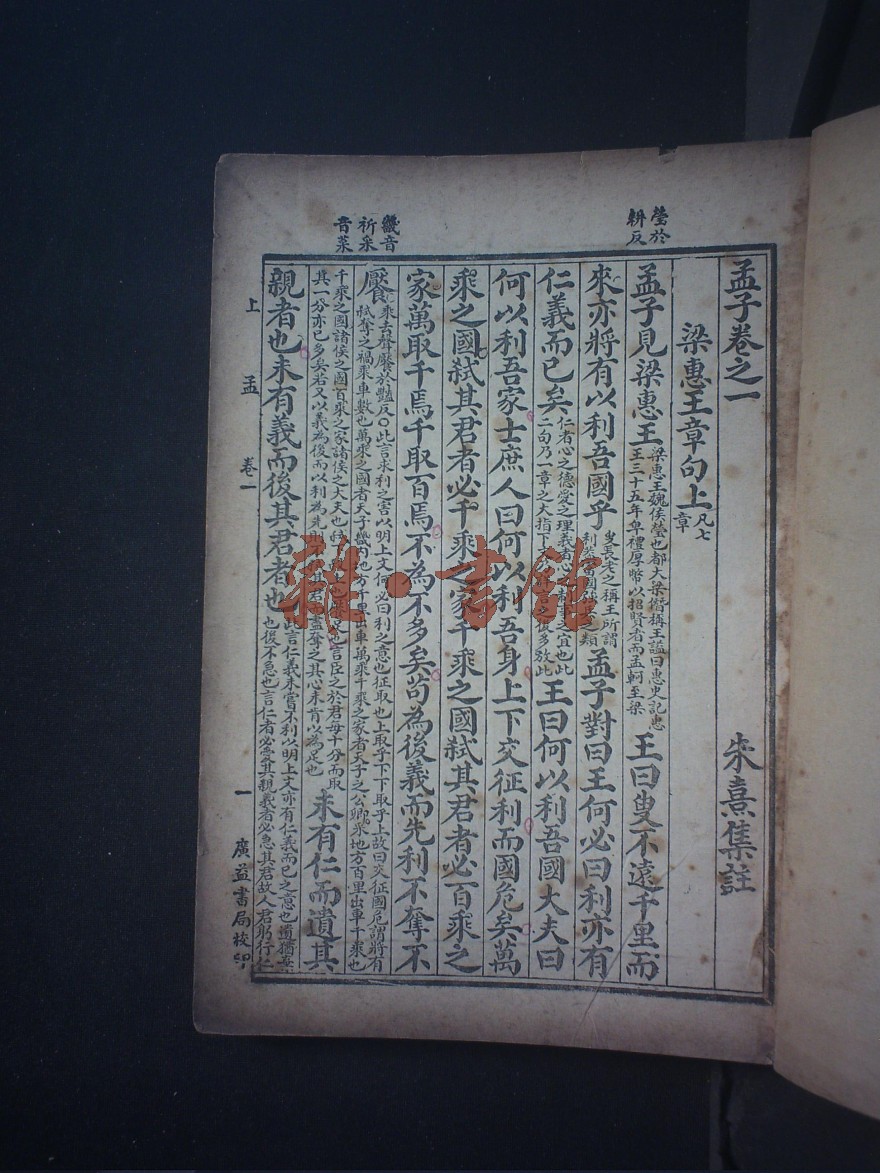 瑩於
耕反
畿音
祈采
音菜
孟子卷之一 朱熹集註
梁惠王章句上
凡七
章
孟子見梁惠王
梁惠王魏侯瑩也都大梁僭稱王謚曰惠史記惠
王三十五年卑禮厚幣以招賢者而孟軻至梁
王曰叟不遠千里而
來亦將有以利吾國乎
叟長老之稱王所謂
利蓋富國彊兵之類
孟子對曰王何必曰利亦有
仁義而已矣
仁者心之德愛之理義者心之制事之宜也此
二句乃一章之大指下文乃詳言之後多放此
王曰何以利吾國大夫曰
何以利吾家士庶人曰何以利吾身上下交征利而國危矣萬
乘之國弒其君者必千乘之家千乘之國弒其君者必百乘之
家萬取千焉千取百焉不為不多矣苟為後義而先利不奪不
饜
乘去聲饜於豔反○此言求利之害以明上文何必曰利之意也征取也上取乎下下取乎上故曰交征國危謂將有
弒奪之禍乘車數也萬乘之國者天子畿內地方千里出車萬乘千乘之家者天子之公卿采地方百里出車千乘也
千乘之國諸侯之國百乘之家諸侯之大夫也弒下殺上也饜足也言臣之於君每十分而取
其一分亦已多矣若又以義為後而以利為先則不弒其君而盡奪之其心未肯以為足也
未有仁而遺其
親者也未有義而後其君者也
此言仁義未嘗不利以明上文亦有仁義而已之意也遺猶棄
也後不急也言仁者必愛其親義者必急其君故人君躬行仁
上孟 卷一 一 廣益書局校印
雜·書館